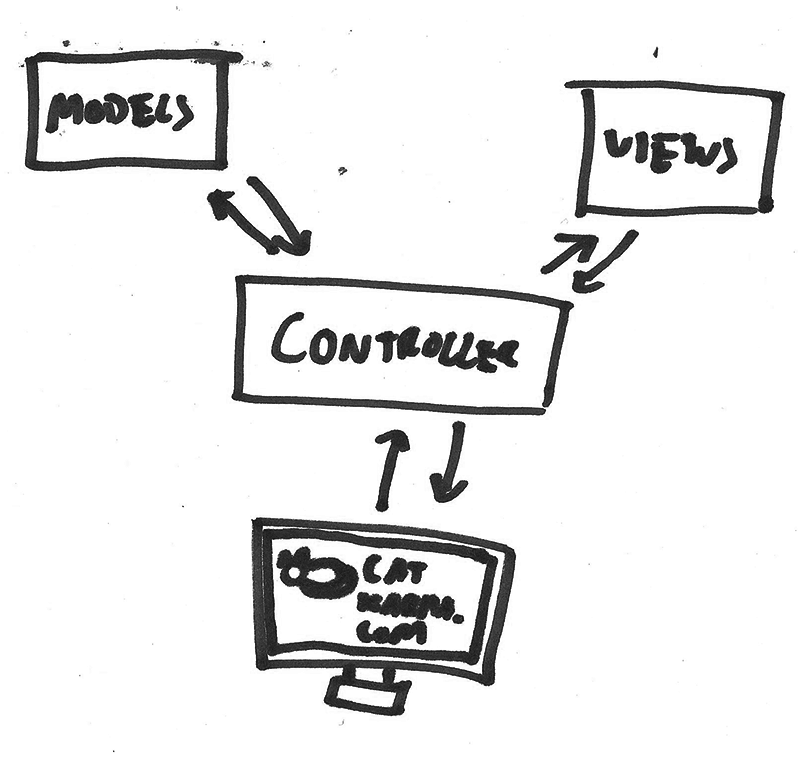 MODELS
VIEWS
CONTROLLER
CAT
KARMA.
COM